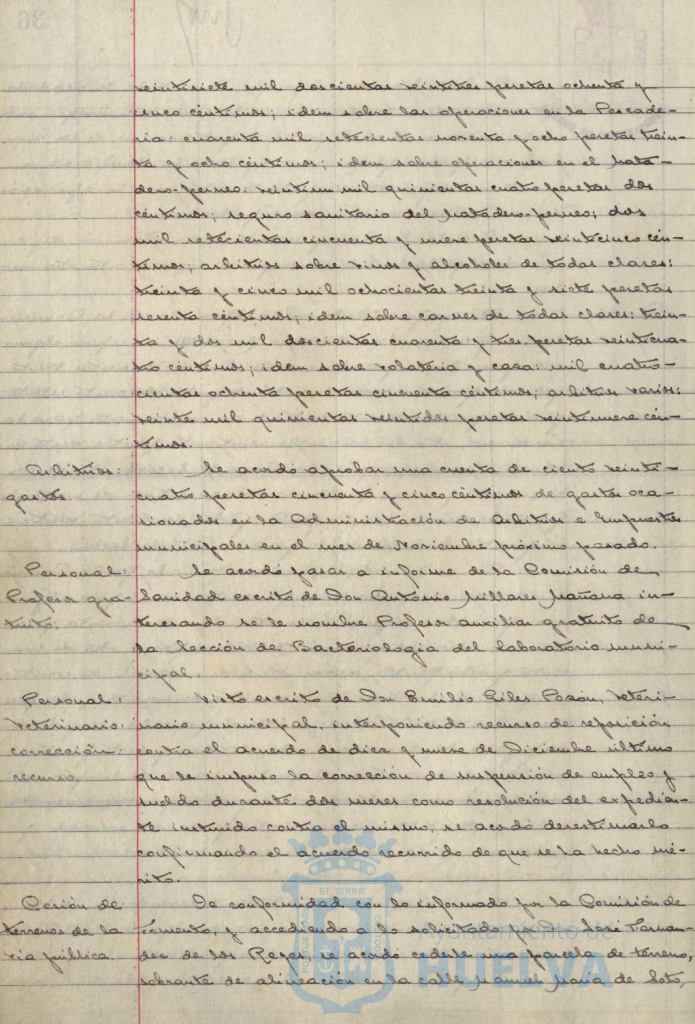 veintisiete mil doscientas veintitres pesetas ochenta y
cinco céntimos; idem sobre las operaciones en la Pescade-
ria: cuarenta mil setecientas noventa y ocho pesetas trein-
ta y ocho céntimos; idem sobre operaciones en el Mata-
dero-perneo: veintiun mil quinientas cuatro pesetas dos
céntimos; seguro sanitario del Matadero-perneo; dos
mil setecientas cincuenta y nueve pesetas veinticinco cén-
timos; arbitrios sobre vinos y alcoholes de todas clases:
treinta y cinco mil ochocientas treinta y siete pesetas
sesenta céntimos; idem sobre carnes de todas clases: trein-
ta y dos mil doscientas cuarenta y tres pesetas veinticua-
tro céntimos; idem sobre volateria y casa: mil cuatro-
cientas ochenta pesetas cincuenta céntimos; arbitrios varios:
veinte mil quinientas veintidos pesetas veintinueve cén-
timos.
Arbitrios: Se acordó aprobar una cuenta de ciento veinti-
gastos. cuatro pesetas cincuenta y cinco céntimos de gastos oca-
sionados en la Administración de Arbitrios e Impuestos
municipales en el mes de Noviembre próximo pasado.
Personal: Se acordó pasar a informe de la Comisión de
Profesor gra- Sanidad escrito de Don Antonio Millares Mañana in-
tuito. teresando se le nombre Profesor auxiliar gratuito de
la Sección de Bacteriologia del laboratorio muni-
cipal.
Personal: Visto escrito de Don Emilio Giles Pozón, Veteri-
Veterinario: nario municipal, interponiendo recurso de reposición
corrección: contra el acuerdo de diez y nueve de Diciembre último
recurso. que le impuso la corrección de suspensión de empleo y
sueldo durante dos meses como resolución del expedien-
te instruido contra el mismo, se acordó desestimarlo
confirmando el acuerdo recurrido de que se ha hecho mé-
rito.
Cesión de De conformidad con lo informado por la Comisión de
terrenos de la Fomento, y accediendo a lo solicitado por José Fernan-
via pública. dez de los Reyes, se acordó cederle una parcela de terreno,
sobrante de alineación en la calle Manuel Maria de Soto,
ET TERRÆ
Ayuntamiento de
HUELVA